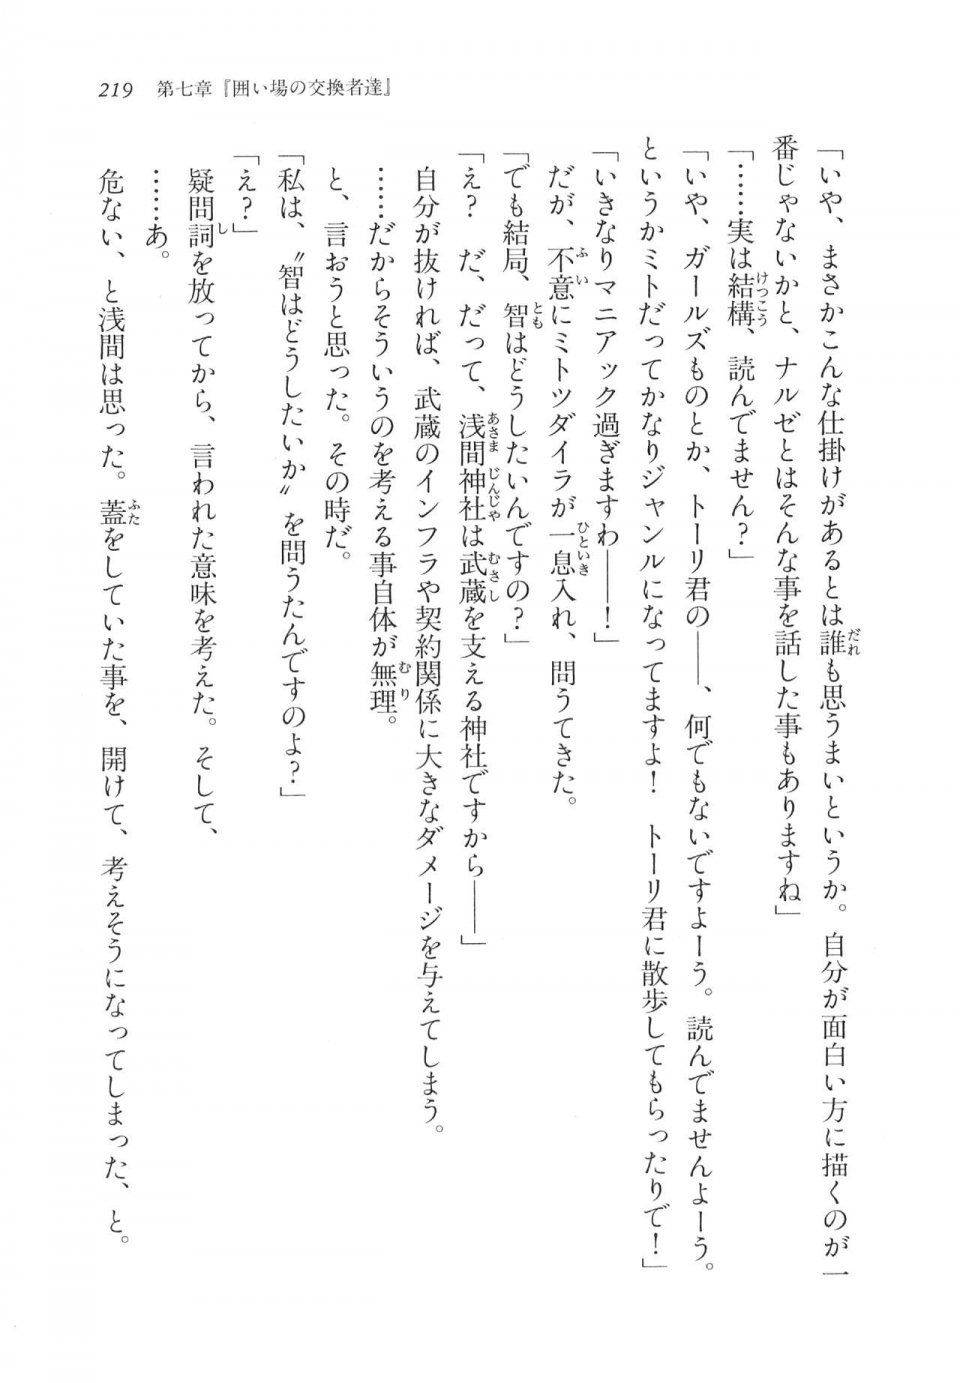 219　第七章『囲い場の交換者達』
「いや、まさかこんな仕掛けがあるとは誰も思うまいというか。自分が面白い方に描くのが一
番じゃないかと、ナルゼとはそんな事を話した事もありますね」
「……実は結構、読んでません？」
「いや、ガールズものとか、トーリ君の――、何でもないですよーう。読んでませんよーう。
というかミトだってかなりジャンルになってますよ！　トーリ君に散歩してもらったりで！」
「いきなりマニアック過ぎますわ――！」
だが、不意にミトツダイラが一息入れ、問うてきた。
「でも結局、智はどうしたいんですの？」
「え？　だ、だって、浅間神社は武蔵を支える神社ですから――」
自分が抜ければ、武蔵のインフラや契約関係に大きなダメージを与えてしまう。
……だからそういうのを考える事自体が無理。
と、言おうと思った。その時だ。
「私は、〝智はどうしたいか〟を問うたんですのよ？」
「え？」
疑問詞を放ってから、言われた意味を考えた。そして、
……あ。
危ない、と浅間は思った。蓋をしていた事を、開けて、考えそうになってしまった、と。